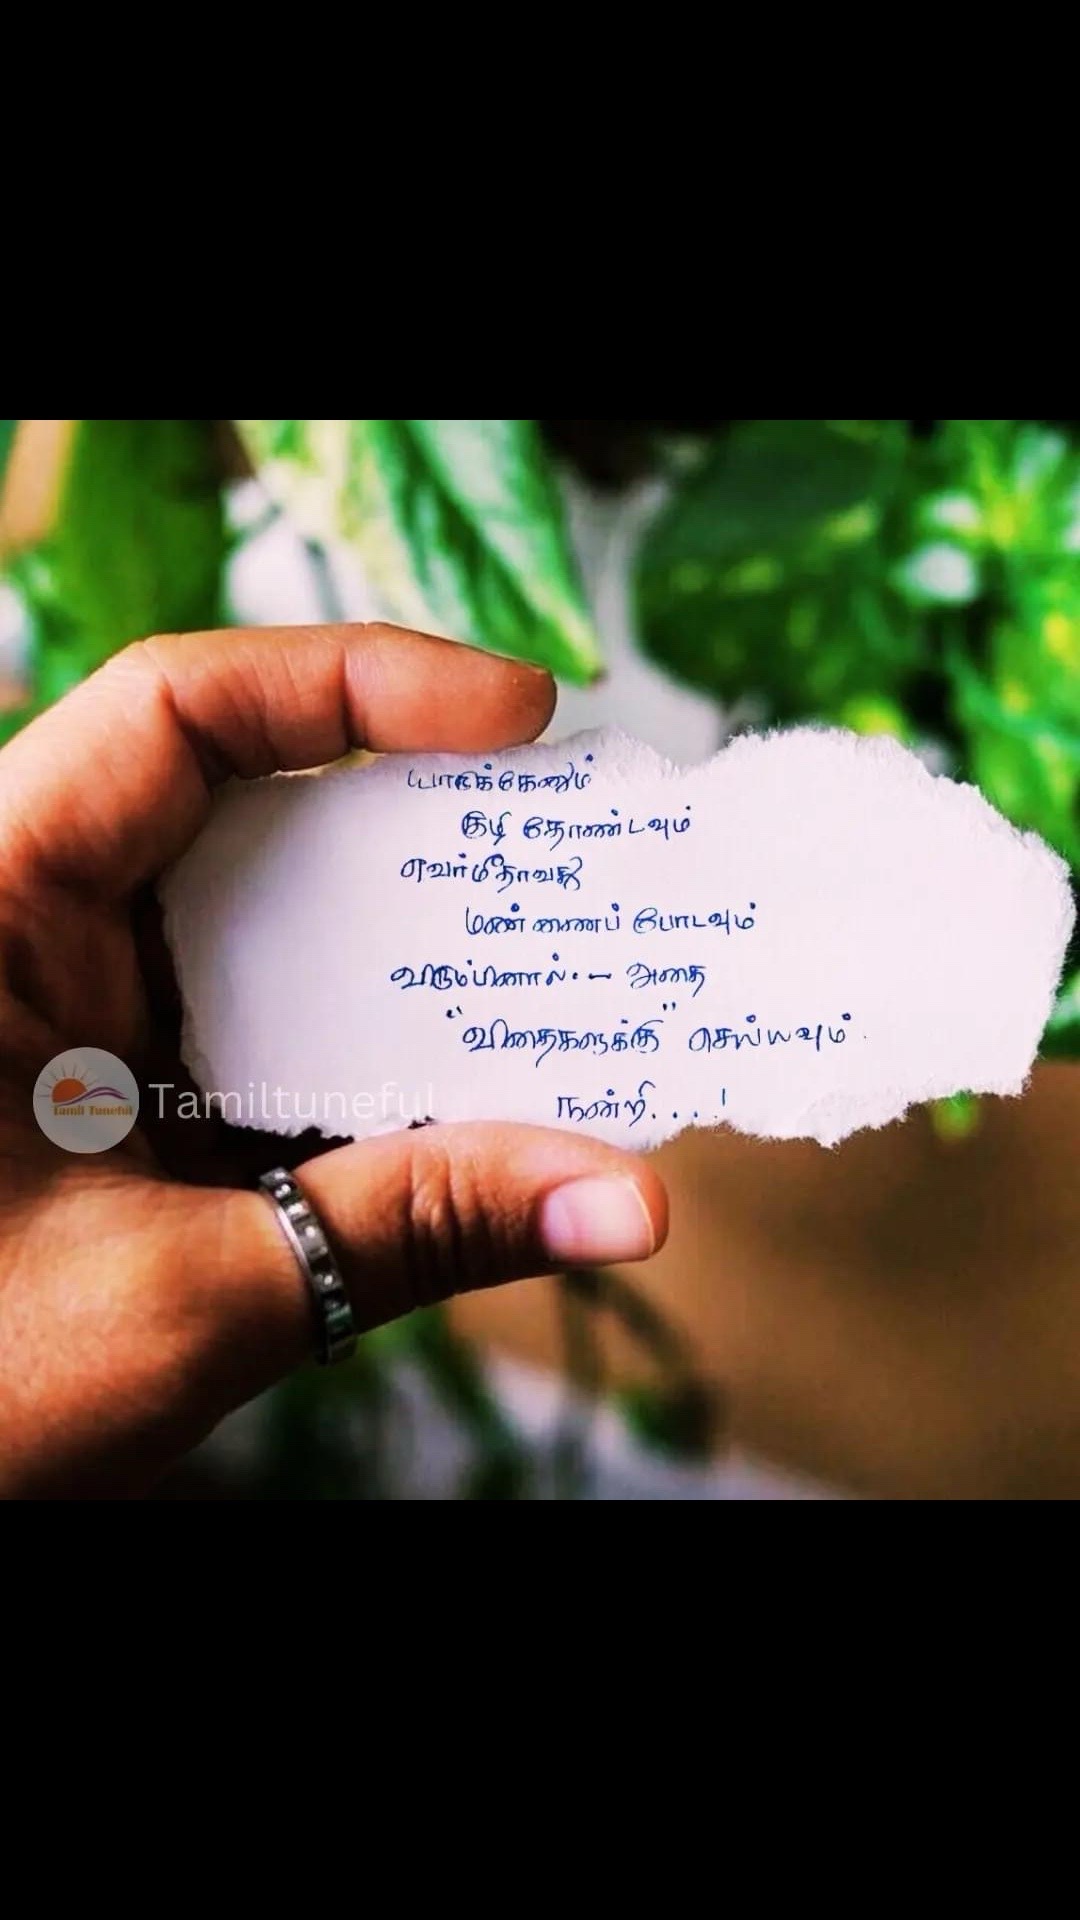 யாருக்கேனும்
குழி தோண்டவும்
எவர்மீதாவது
மண்ணைப் போடவும்
விரும்பினால்.– அதை
"விதைகளுக்கு" செய்யவும்.
நன்றி...!
Tamil Tuneful
Tamiltuneful